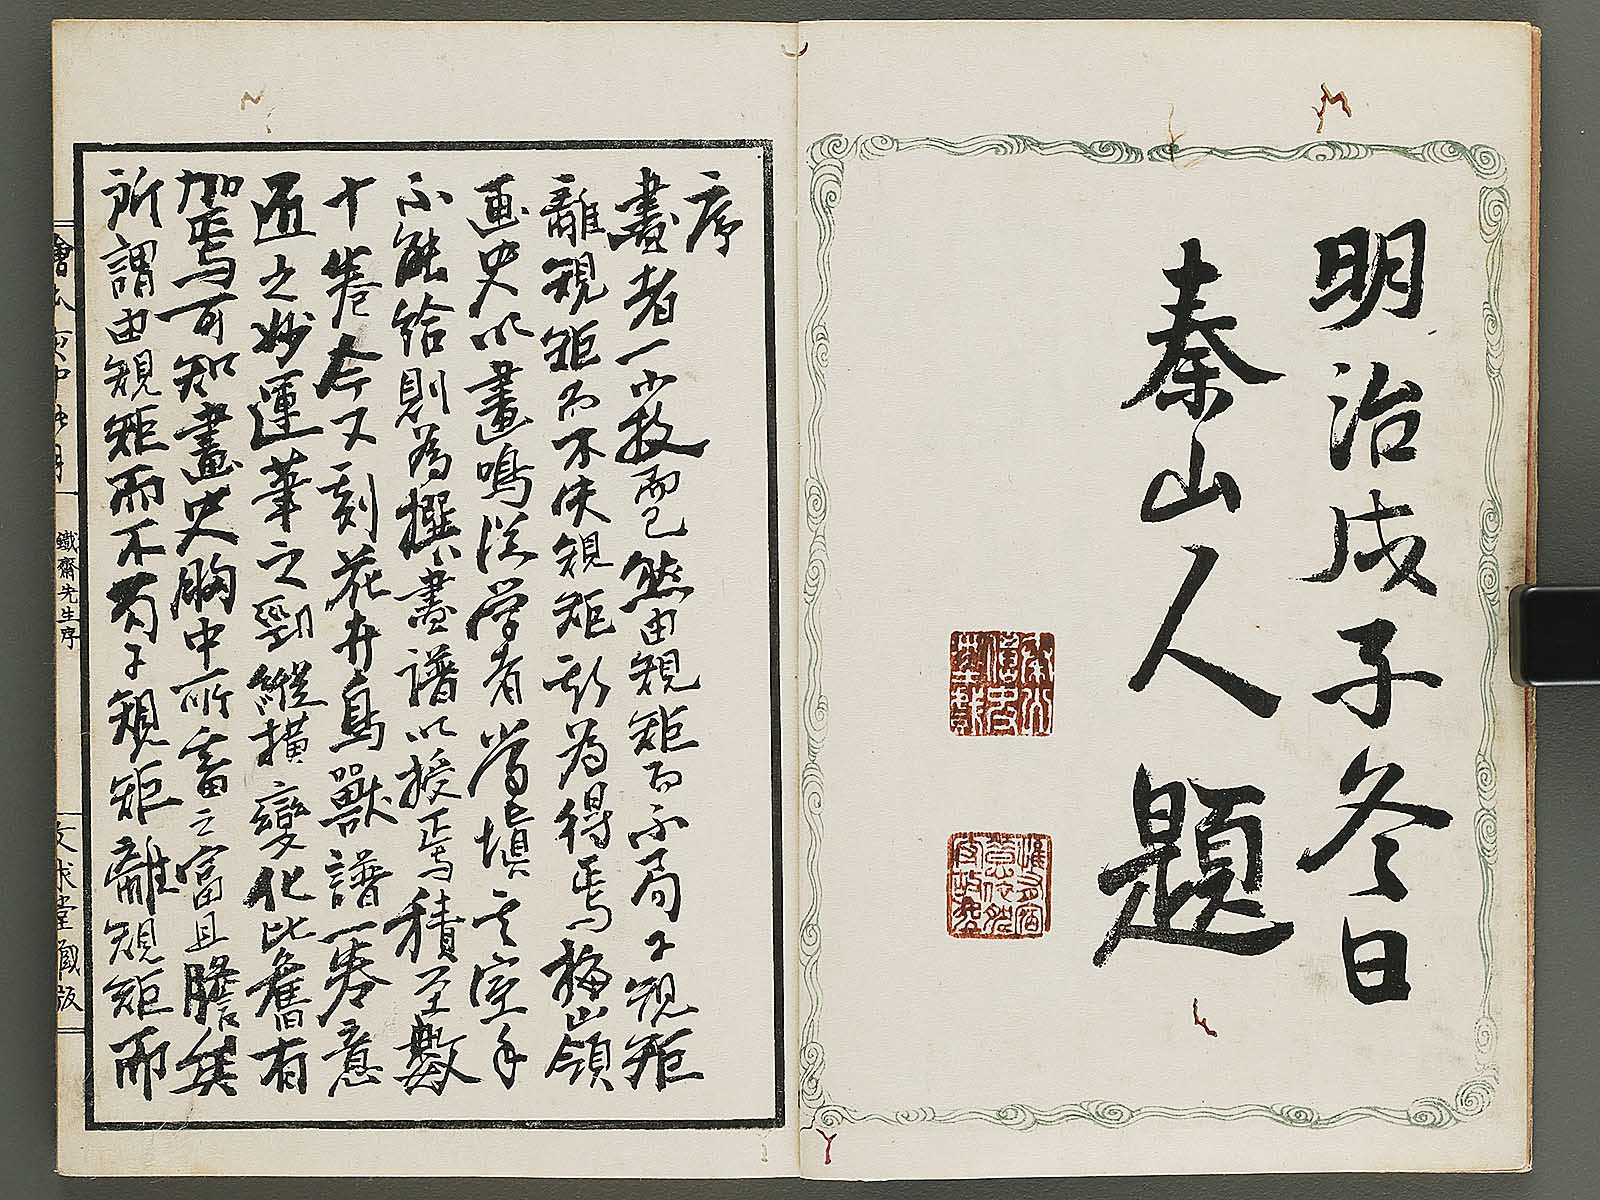 明治戊子冬日
秦山人題
序
畫者一小技而已然由規矩而不局于規矩
離規矩而不失規矩斯為得焉梅嶺
画史以畫鳴從学者常塡其室手
不能給則為撰畫譜以授焉積至數
十卷今又刻花卉鳥獸譜一卷意
匠之妙運筆之勁縱橫變化比舊有
加焉可知畫史胸中所蓄之富且贍矣
所謂由規矩而不局于規矩離規矩而
鐵齋先生序
文求堂藏版